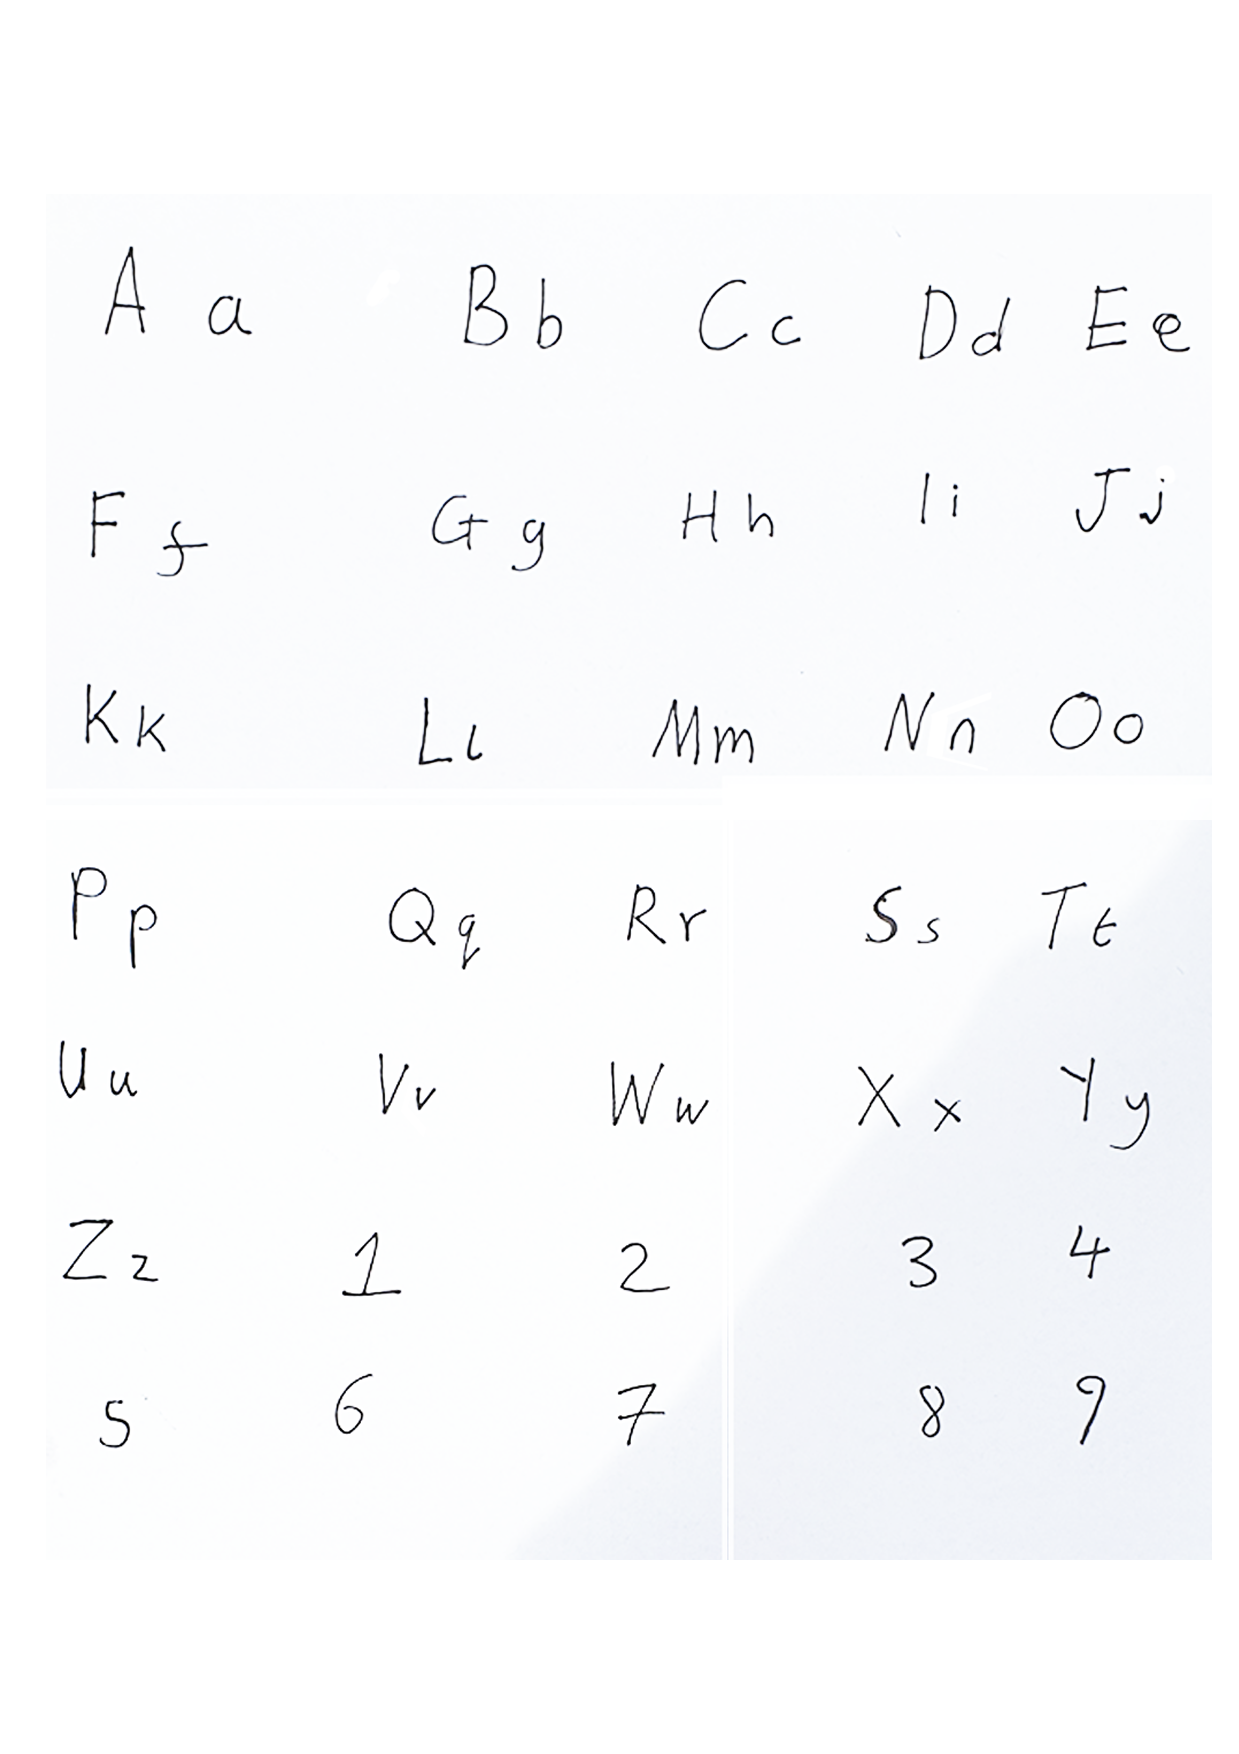 A a B b C c D d E e
F f G g H h I i J j
K k L l M m N n O o
P p Q q R r S s T t
U u V v W w X x Y y
Z z 1 2 3 4
5 6 7 8 9